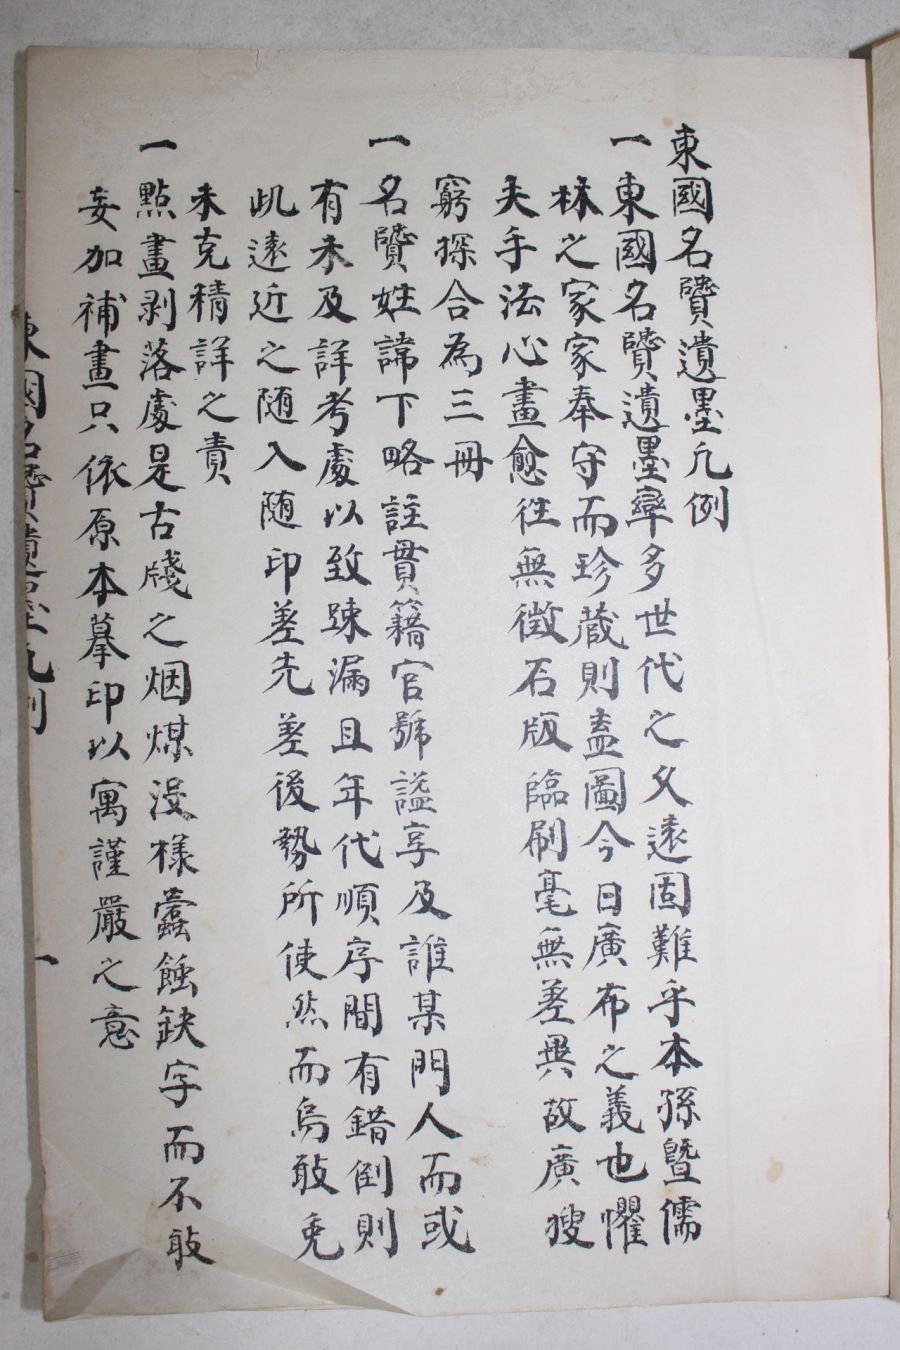 東國名賢遺墨凡例
一東國名賢遺墨率多世代之久遠固難乎本孫曁儒
林之家家奉守而珍蔵則盍圖今日廣布之義也懼
夫手法心畫愈徃無徴石版臨刷毫無差異故廣搜
窮探合為三冊
一名賢姓諱下略註貫籍官號謚享及誰某門人而或
有未及詳考處以致踈漏且年代順序間有錯倒則
此遠近之随入随印差先差後勢所使然而烏敢免
未克精詳之責
一點畫剥落處是古牋之烟煤没様蠧蝕缺字而不敢
妄加補畫只依原本摹印以寓謹嚴之意
東國名賢遺墨凡例 一